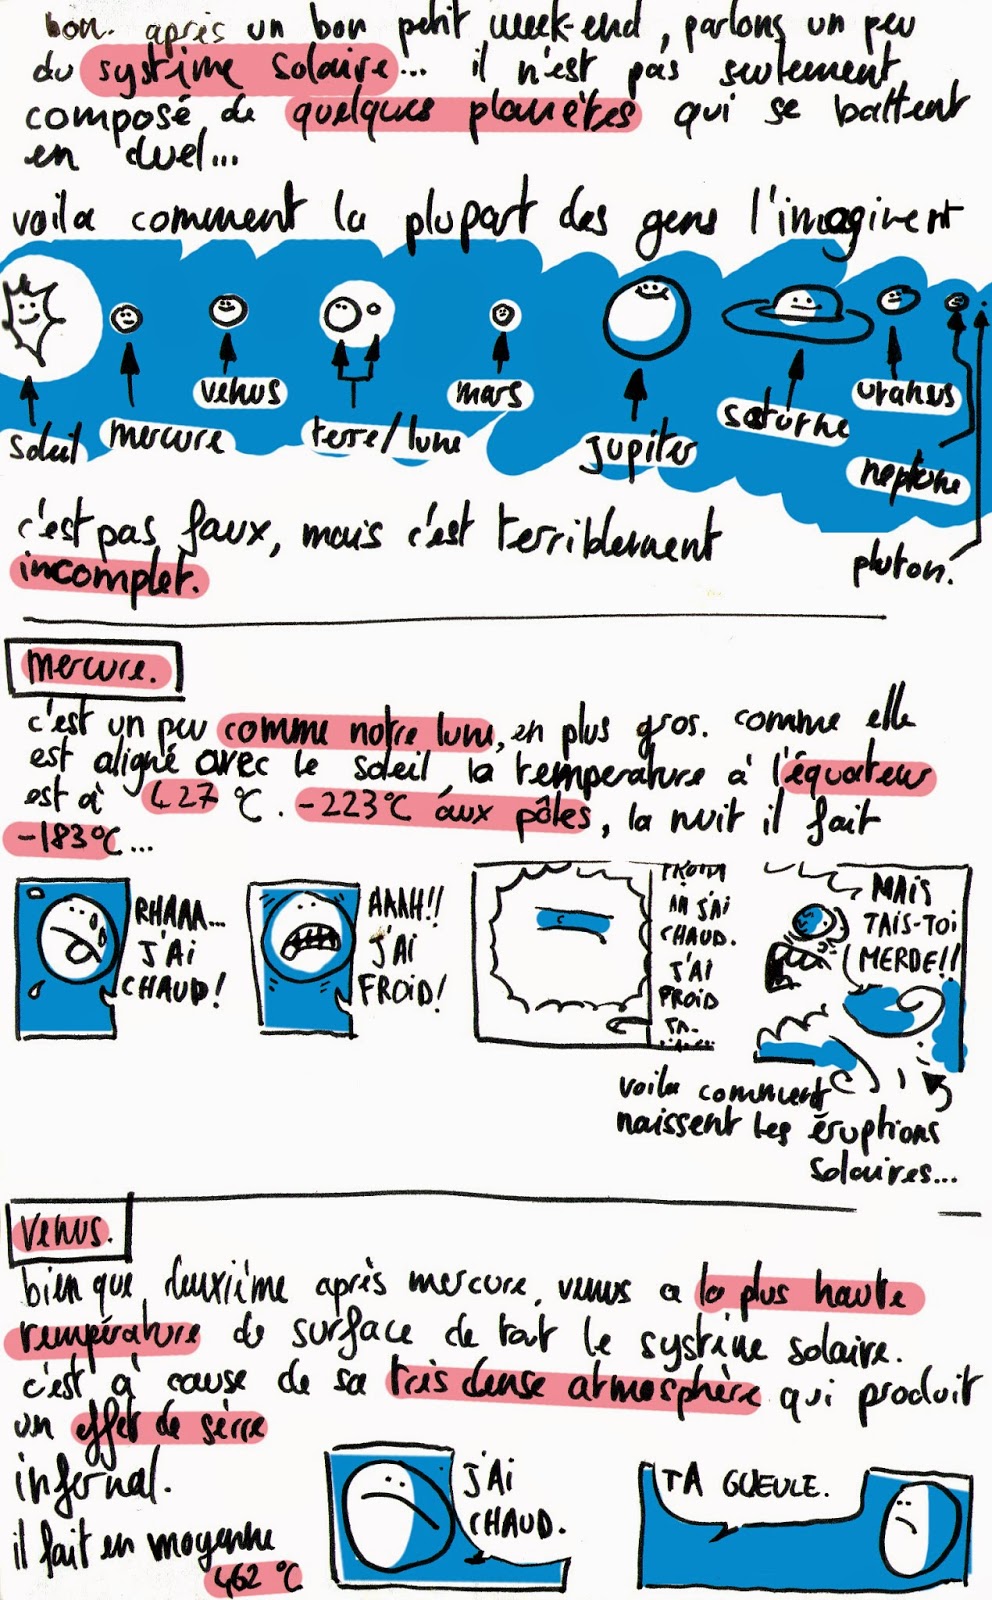 bon. après un bon petit week-end, parlons un peu
du système solaire... il n'est pas seulement
composé de quelques planètes qui se battent
en duel...
voila comment la plupart des gens l'imaginent
soleil
mercure
venus
terre/lune
mars
jupiter
saturne
uranus
neptune
pluton.
c'est pas faux, mais c'est terriblement
incomplet.
mercure.
c'est un peu comme notre lune, en plus gros. comme elle
est aligné avec le soleil la temperature à l'équateur
est à 427 °C. -223°C aux pôles, la nuit il fait
-183°C...
RHAAA...
J'AI
CHAUD!
AAAH!!
J'AI
FROID!
FROID
AA J'AI
CHAUD.
J'AI
FROID
MAIS
TAIS-TOI
MERDE!!
voila comment
naissent les éruptions
solaires...
venus.
bien que deuxième après mercure, venus a la plus haute
température de surface de tout le système solaire.
c'est à cause de sa très dense atmosphère qui produit
un effet de sèrre
infernal.
il fait en moyenne
462 °C
J'AI
CHAUD.
TA GUEULE.